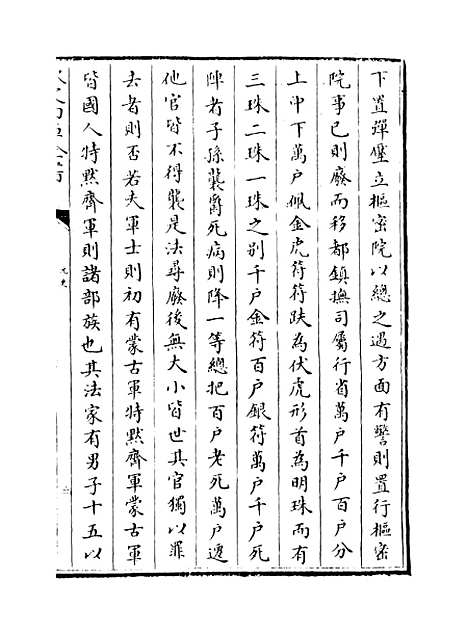 下置彈壓立樞密院以總之遇方面有警則置行樞密
院事已則廢而移都鎮撫司屬行省萬户千户百户分
上中下萬户佩金虎符符趺為伏虎形首為明珠而有
三珠二珠一珠之别千户金符百户銀符萬户千户死
陣者子孫襲爵死病則降一等總把百户老死萬户遷
他官皆不得襲是法尋廢後無大小皆世其官獨以罪
去者則否若夫軍士則初有蒙古軍特黙齊軍蒙古軍
皆國人特黙齊軍則諸部族也其法家有男子十五以
元史